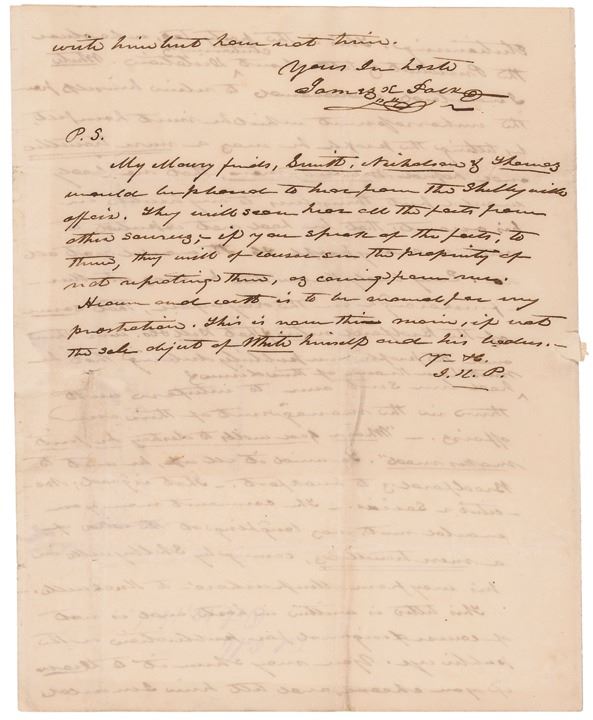 with him but how not him.
Yours In haste
James K Polk
P.S.
My Maury friends, Smith, Nicholson & Thomas
would be pleased to hear from the Shelbyville
affair. They will soon hear all the facts from
other sources; – if you speak of the facts, to
them, they will of course see the propriety of
not repeating them, as coming from me.
Heaven and earth is to be moved for my
prostration. This is now the main, if not
the sole object of White himself and his leaders. –
J. K. P.